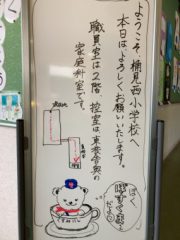 ようこそ、楠見西小学校へ
本日は、よろしくお願いいたします。
職員室は2階、控室は、東校舎奥の
家庭科室です。
ぼく
だよ